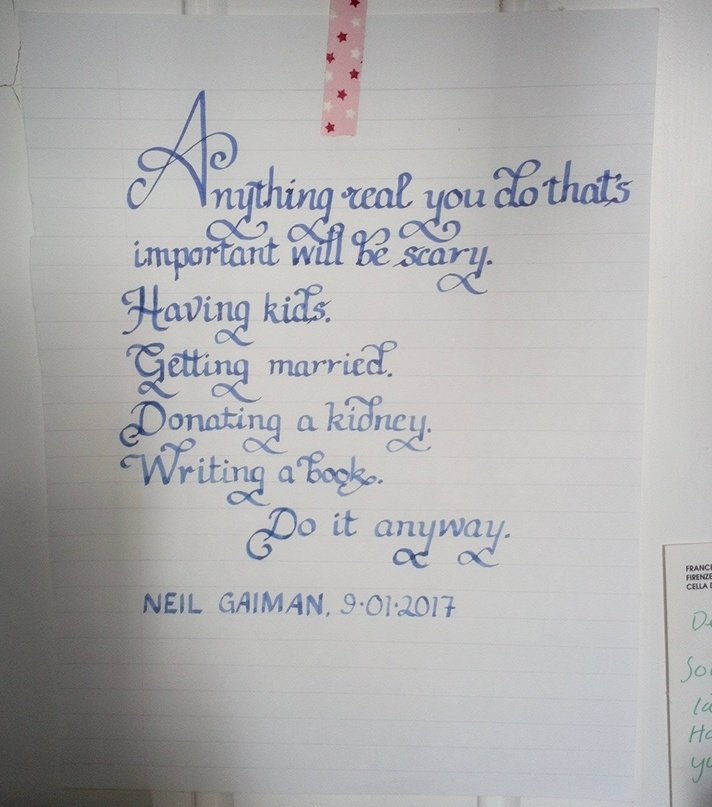 Anything real you do that's
important will be scary.
Having kids.
Getting married.
Donating a kidney.
Writing a book.
Do it anyway.
NEIL GAIMAN, 9·01·2017
FIRENZE
CELLA